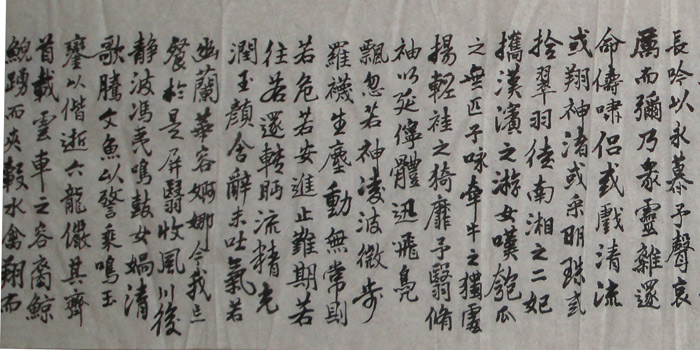 長吟以永慕兮聲哀
厲而彌乃衆靈雜遝
命儔嘯侶或戲清流
或翔神渚或采明珠或
拾翠羽從南湘之二妃
攜漢濱之游女嘆匏瓜
之無匹兮詠牽牛之獨處
揚輕袿之猗靡兮翳脩
袖以延佇體迅飛鳧
飄忽若神凌波微步
羅襪生塵動無常則
若危若安進止難期若
往若還轉眄流精光
潤玉顏含辭未吐氣若
幽蘭華容婀娜令我忘
餐於是屏翳收風川後
靜波馮夷鳴鼓女媧清
歌騰文魚以警乘鳴玉
鑾以偕逝六龍儼其齊
首載雲車之容裔鯨
鯢踴而夾轂水禽翔而